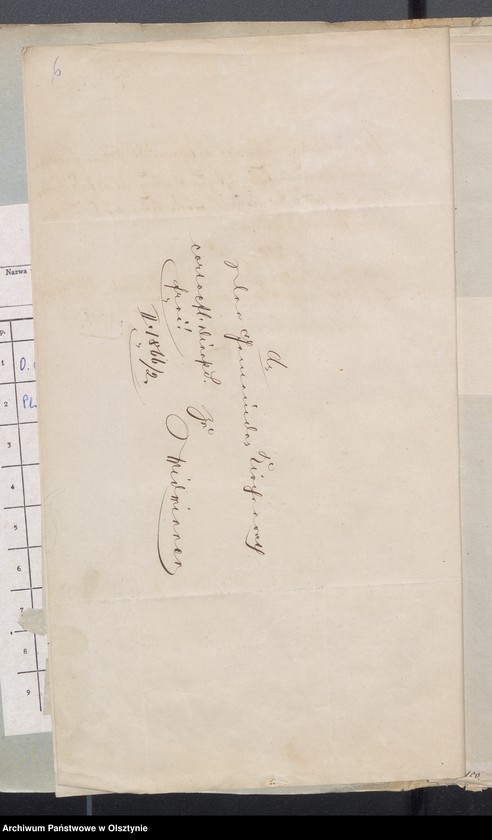 6
An
den Gemeinde Kirchenrath
zu
Widminnen
frei!
II. 1866/2.
Nazwa
1
2
3
4
5
6
7
8
9
D.
Pl
Archiwum Państwowe w Olsztynie